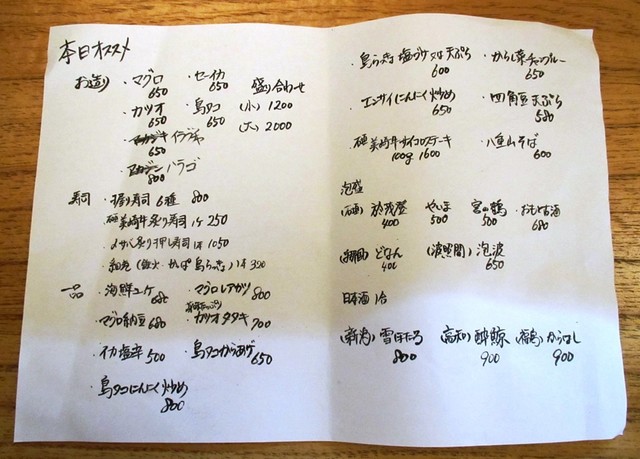 本日オススメ
お造り ・マグロ 650 ・セーイカ 650 盛り合わせ
・カツオ 650 ・島タコ 650 (小) 1200
650 (大) 2000
800
寿司 ・握り寿司 6種 800
石垣美崎牛炙り寿司 1ケ 250
・〆サバ炙り押し寿司 1本 1050
・細巻 (鉄火・かっぱ 島らっきょ) 1本 350
一品 ・海鮮ユッケ 680 ・マグロレアカツ 800
・マグロ納豆 680 ・カツオタタキ 700
・イカ塩辛 500 ・島タコからあげ 650
・島タコにんにく炒め 800
・島らっきょ 塩づけ 又は 天ぷら 600 ・からし菜チャンプルー 650
・エンサイにんにく炒め 650 ・四角豆天ぷら 580
・石垣美崎牛サイコロステーキ 100g 1600 ・八重山そば 600
泡盛
(石垣) 於茂登 400 やいま 500 宮の鶴 500 ・おもと古酒 680
(与那国) どなん 400 (波照間) 泡波 650
日本酒 1合
(新潟) 800 (高知) 酔鯨 900 (福島) からはし 900